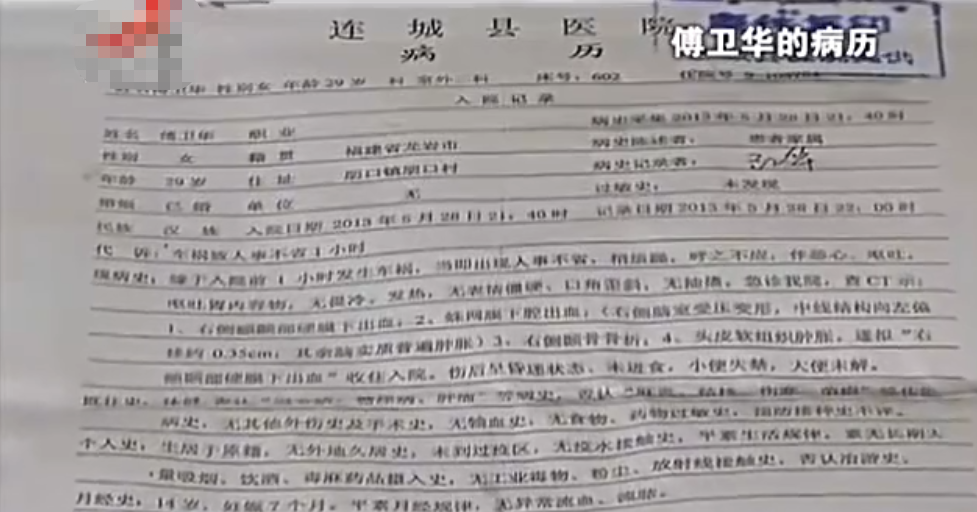 连城县医院
病历
傅卫华的病历
性别女 年龄29岁 科室外一科 床号:602
入院记录
姓名 傅卫华 职业 病史采集2013年5月28日21:40时
性别 女 籍贯 福建省龙岩市 病史陈述者: 患者家属
年龄 29岁 住址 朋口镇朋口村 病史记录者:
婚姻 已婚 单位 无 过敏史: 未发现
民族 汉族 入院日期2013年5月28日21:40时 记录日期2013年5月28日22:00时
代诉:车祸致人事不省1小时
现病史:缘于入院前1小时发生车祸,当即出现人事不省,稍烦躁,呼之不应,伴恶心、呕吐,
呕吐胃内容物,无畏冷、发热,无表情僵硬、口角歪斜,无抽搐,急诊我院,查CT示:
1、右侧颞顶部硬膜下出血;2、蛛网膜下腔出血;(右侧脑室受压变形,中线结构向左偏
移约0.35cm;其余脑实质普遍肿胀)3、右侧颞骨骨折;4、头皮软组织肿胀。遂拟“右
硬膜下出血”收住入院。伤后呈昏迷状态、未进食,小便失禁,大便未解。
既往史:
病史,无其他外伤史及手术史,无输血史,无食物、药物过敏史,预防接种史不详。
个人史:生居于原籍,无外地久居史,未到过疫区,无疫水接触史,平素生活规律,素无长期大
量吸烟、饮酒、毒麻药品摄入史,无工业毒物、粉尘、放射线接触史,否认冶游史。
月经史:14岁,妊娠7个月。平素月经规律,无异常流血、流脓。